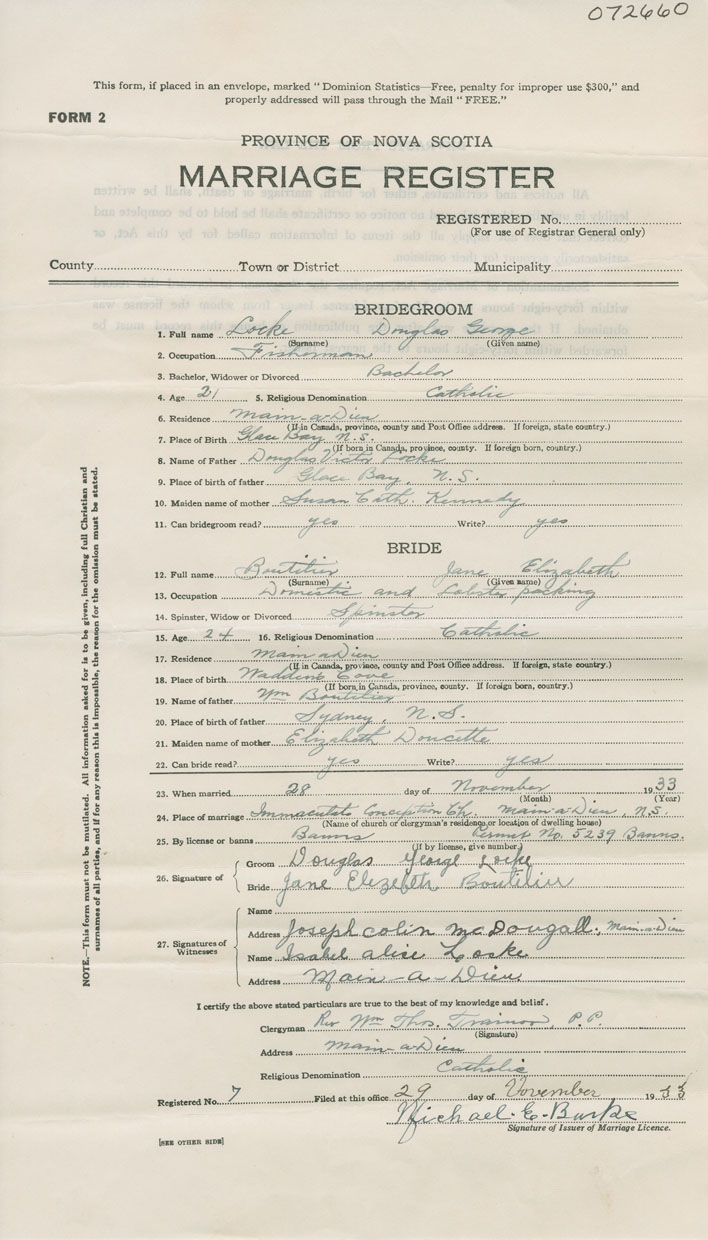 072660
This form, if placed in an envelope, marked "Dominion Statistics—Free, penalty for improper use $300," and
properly addressed will pass through the Mail "FREE."
FORM 2
PROVINCE OF NOVA SCOTIA
MARRIAGE REGISTER
REGISTERED No.
(For use of Registrar General only)
County Town or District Municipality
BRIDEGROOM
1. Full name Locke Douglas George
(Surname) (Given name)
2. Occupation Fisherman
3. Bachelor, Widower or Divorced Bachelor
4. Age 21 5. Religious Denomination Catholic
6. Residence Main-a-Dieu
(If in Canada, province, county and Post Office address. If foreign, state country.)
7. Place of Birth Glace Bay N.S.
(If born in Canada, province, county. If foreign born, country.)
8. Name of Father Douglas Victor Locke
9. Place of birth of father Glace Bay, N.S.
10. Maiden name of mother Susan Cath. Kennedy
11. Can bridegroom read? yes Write? yes
BRIDE
12. Full name Boutilier Jane Elizabeth
(Surname) (Given name)
13. Occupation Domestic and Lobster packing
14. Spinster, Widow or Divorced Spinster
15. Age 24 16. Religious Denomination Catholic
17. Residence Main a Dieu
(If in Canada, province, county and Post Office address. If foreign, state country.)
18. Place of birth Waddens Cove
(If born in Canada, province, county. If foreign born, country.)
19. Name of father Wm Boutilier
20. Place of birth of father Sydney, N.S.
21. Maiden name of mother Elizabeth Doucette
22. Can bride read? yes Write? yes
23. When married 28 day of November 1933
(Month) (Year)
24. Place of marriage Immaculate Conception Ch. Main-a-Dieu, N.S.
(Name of church or clergyman's residence, or location of dwelling house)
25. By license or banns Banns Permit No. 5239 Banns.
(If by license, give number)
26. Signature of
Groom Douglas George Locke
Bride Jane Elezebeth Boutilier
27. Signatures of Witnesses
Name
Address Joseph Colin McDougall, Main-a-Dieu
Name Isabel Alise Locke
Address Main-a-Dieu
I certify the above stated particulars are true to the best of my knowledge and belief.
Clergyman Rev Wm Thos. Trainor, P.P.
(Signature)
Address Main-a-Dieu
Religious Denomination Catholic
Registered No. 7 Filed at this office 29 day of November 1933
Michael. E. Burke
Signature of Issuer of Marriage Licence.
[SEE OTHER SIDE]
NOTE.—This form must not be mutilated. All information asked for is to be given, including full Christian and
surnames of all parties, and if for any reason this is impossible, the reason for the omission must be stated.